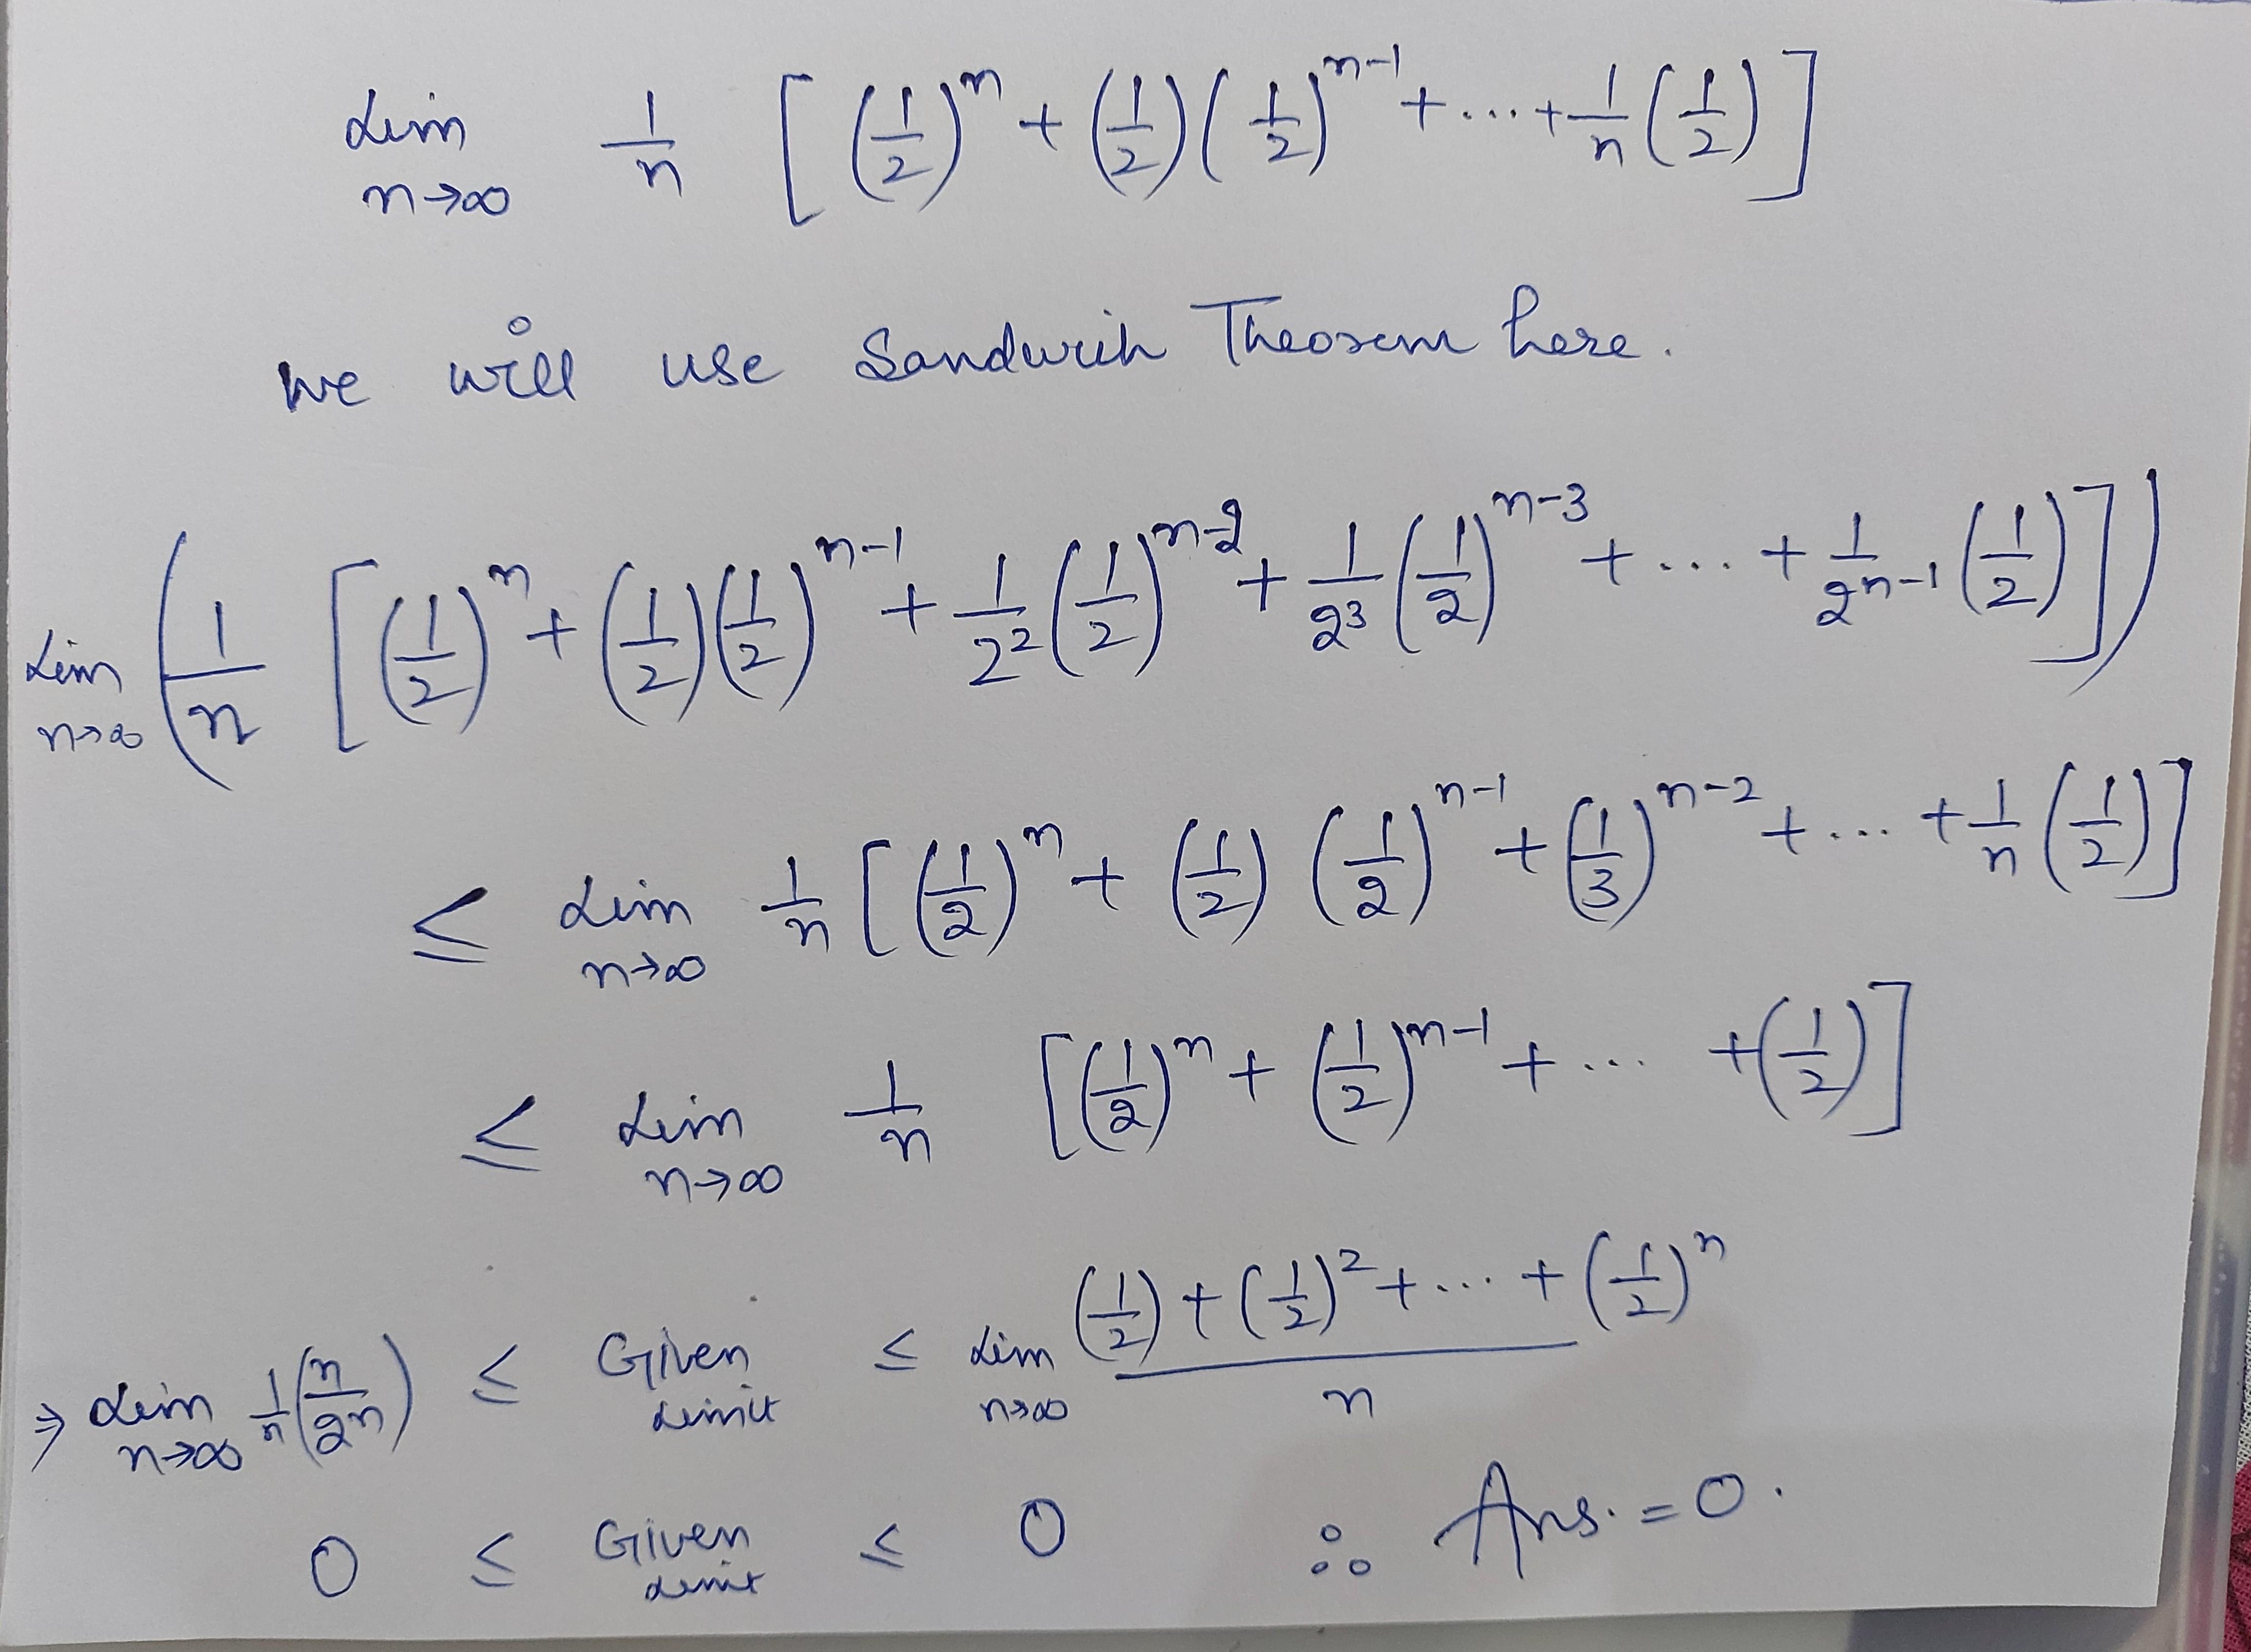 Lim n→∞ 1/n [(1/2)^n + (1/2)(1/2)^(n-1) + ... + 1/n (1/2)]
we will use Sandwich Theorem here.
Lim n→∞ (1/n [(1/2)^n + (1/2)(1/2)^(n-1) + 1/2^2 (1/2)^(n-2) + 1/2^3 (1/2)^(n-3) + ... + 1/2^(n-1) (1/2)])
≤ Lim n→∞ 1/n [(1/2)^n + (1/2)(1/2)^(n-1) + (1/3)^(n-2) + ... + 1/n (1/2)]
≤ Lim n→∞ 1/n [(1/2)^n + (1/2)^(n-1) + ... + (1/2)]
⇒ Lim n→∞ 1/n (n/2^n) ≤ Given Limit ≤ Lim n→∞ ((1/2) + (1/2)^2 + ... + (1/2)^n)/n
0 ≤ Given Limit ≤ 0 ∴ Ans. = 0.